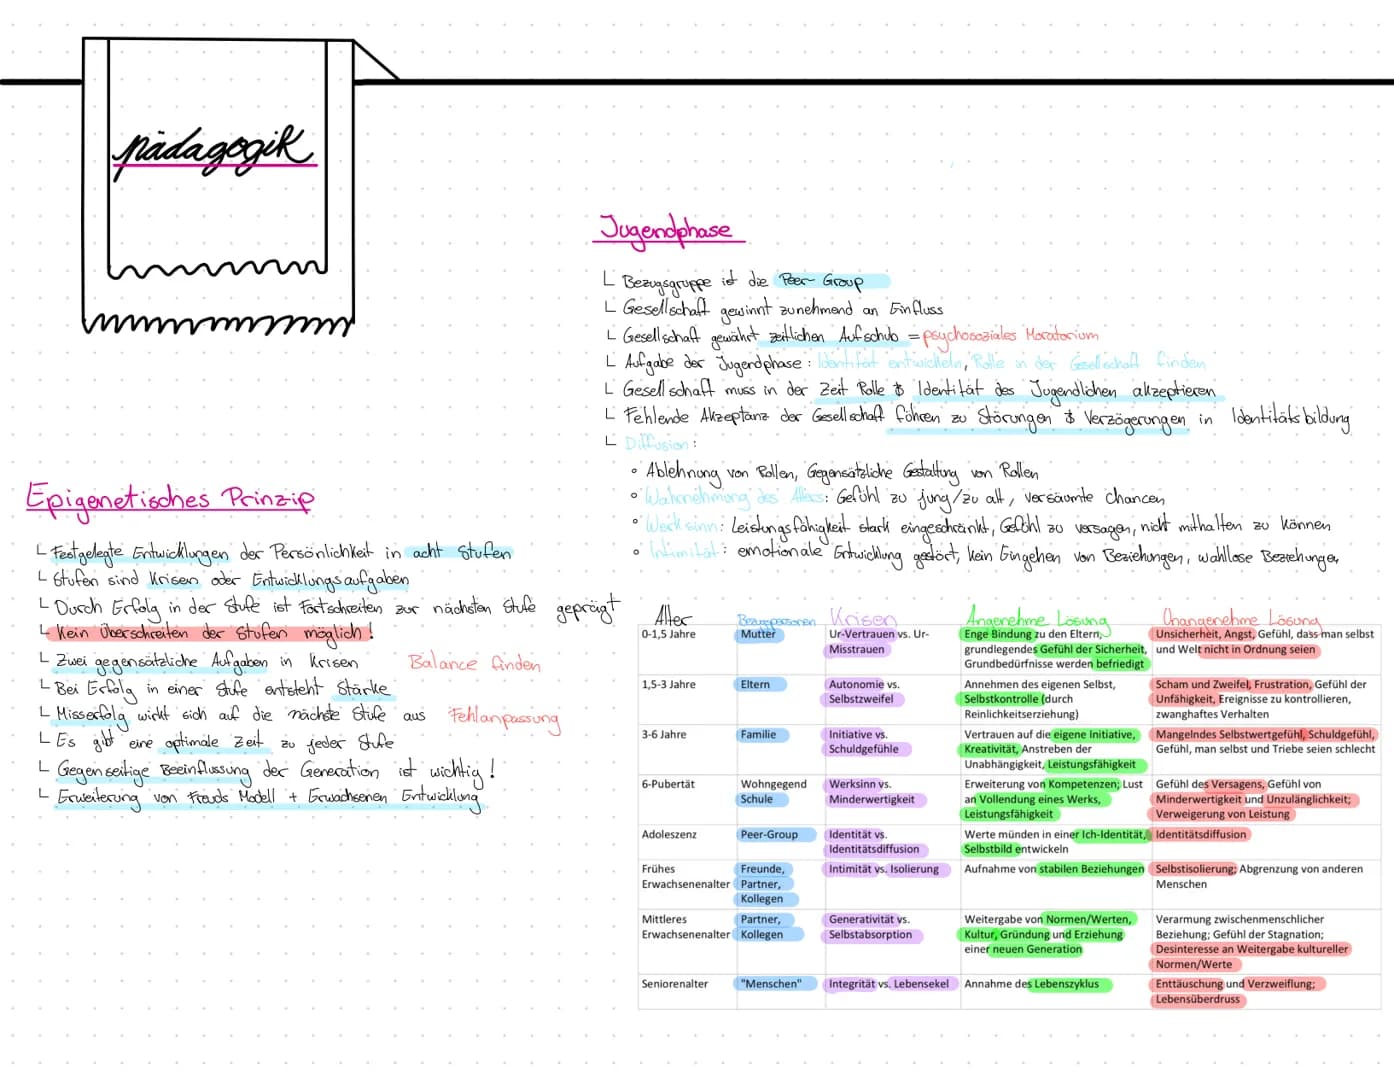 pädagogik
Jugendphase
Bezugsgruppe ist die Peer-Group
Gesellschaft gewinnt zunehmend an Einfluss
Gesellschaft gewährt zeitlichen Aufschub = psychosoziales Moratorium
Aufgabe der Jugendphase: Identität entwickeln, Rolle in der Gesellschaft finden
Gesellschaft muss in der Zeit Rolle & Identität des Jugendlichen akzeptieren
Fehlende Akzeptanz der Gesellschaft führen zu Störungen & Verzögerungen in Identitätsbildung
Diffusion:
• Ablehnung von Rollen, Gegensätzliche Gestaltung von Rollen
• Wahrnehmung des Alters: Gefühl zu jung/zu alt, versäumte Chancen
• Werksinn: Leistungsfähigkeit stark eingeschränkt, Gefühl zu versagen, nicht mithalten zu können
• Intimität: emotionale Entwicklung gestört, kein Eingehen von Beziehungen, wahllose Beziehungen
Epigenetisches Prinzip
Festgelegte Entwicklungen der Persönlichkeit in acht Stufen
Stufen sind Krisen oder Entwicklungsaufgaben
Durch Erfolg in der Stufe ist Fortschreiten zur nächsten Stufe geprägt
Kein Überschreiten der Stufen möglich!
Zwei gegensätzliche Aufgaben in Krisen Balance finden
Bei Erfolg in einer Stufe entsteht Stärke
Misserfolg wirkt sich auf die nächste Stufe aus Fehlanpassung
Es gibt eine optimale Zeit zu jeder Stufe
Gegenseitige Beeinflussung der Generation ist wichtig!
Erweiterung von Freuds Modell + Erwachsenen Entwicklung
Alter Bezugspersonen Krisen Angenehme Lösung Unangenehme Lösung
0-1,5 Jahre Mutter Ur-Vertrauen vs. Ur- Enge Bindung zu den Eltern, Unsicherheit, Angst, Gefühl, dass man selbst
Misstrauen grundlegendes Gefühl der Sicherheit, und Welt nicht in Ordnung seien
Grundbedürfnisse werden befriedigt
1,5-3 Jahre Eltern Autonomie vs. Annehmen des eigenen Selbst, Scham und Zweifel, Frustration, Gefühl der
Selbstzweifel Selbstkontrolle (durch Unfähigkeit, Ereignisse zu kontrollieren,
Reinlichkeitserziehung) zwanghaftes Verhalten
3-6 Jahre Familie Initiative vs. Vertrauen auf die eigene Initiative, Mangelndes Selbstwertgefühl, Schuldgefühl,
Schuldgefühle Kreativität, Anstreben der Gefühl, man selbst und Triebe seien schlecht
Unabhängigkeit, Leistungsfähigkeit
6-Pubertät Wohngegend Werksinn vs. Erweiterung von Kompetenzen; Lust Gefühl des Versagens, Gefühl von
Schule Minderwertigkeit an Vollendung eines Werks, Minderwertigkeit und Unzulänglichkeit;
Leistungsfähigkeit Verweigerung von Leistung
Adoleszenz Peer-Group Identität vs. Werte münden in einer Ich-Identität, Identitätsdiffusion
Identitätsdiffusion Selbstbild entwickeln
Frühes Freunde, Intimität vs. Isolierung Aufnahme von stabilen Beziehungen Selbstisolierung; Abgrenzung von anderen
Erwachsenenalter Partner, Menschen
Kollegen
Mittleres Partner, Generativität vs. Weitergabe von Normen/Werten, Verarmung zwischenmenschlicher
Erwachsenenalter Kollegen Selbstabsorption Kultur, Gründung und Erziehung Beziehung; Gefühl der Stagnation;
einer neuen Generation Desinteresse an Weitergabe kultureller
Normen/Werte
Seniorenalter "Menschen" Integrität vs. Lebensekel Annahme des Lebenszyklus Enttäuschung und Verzweiflung;
Lebensüberdruss